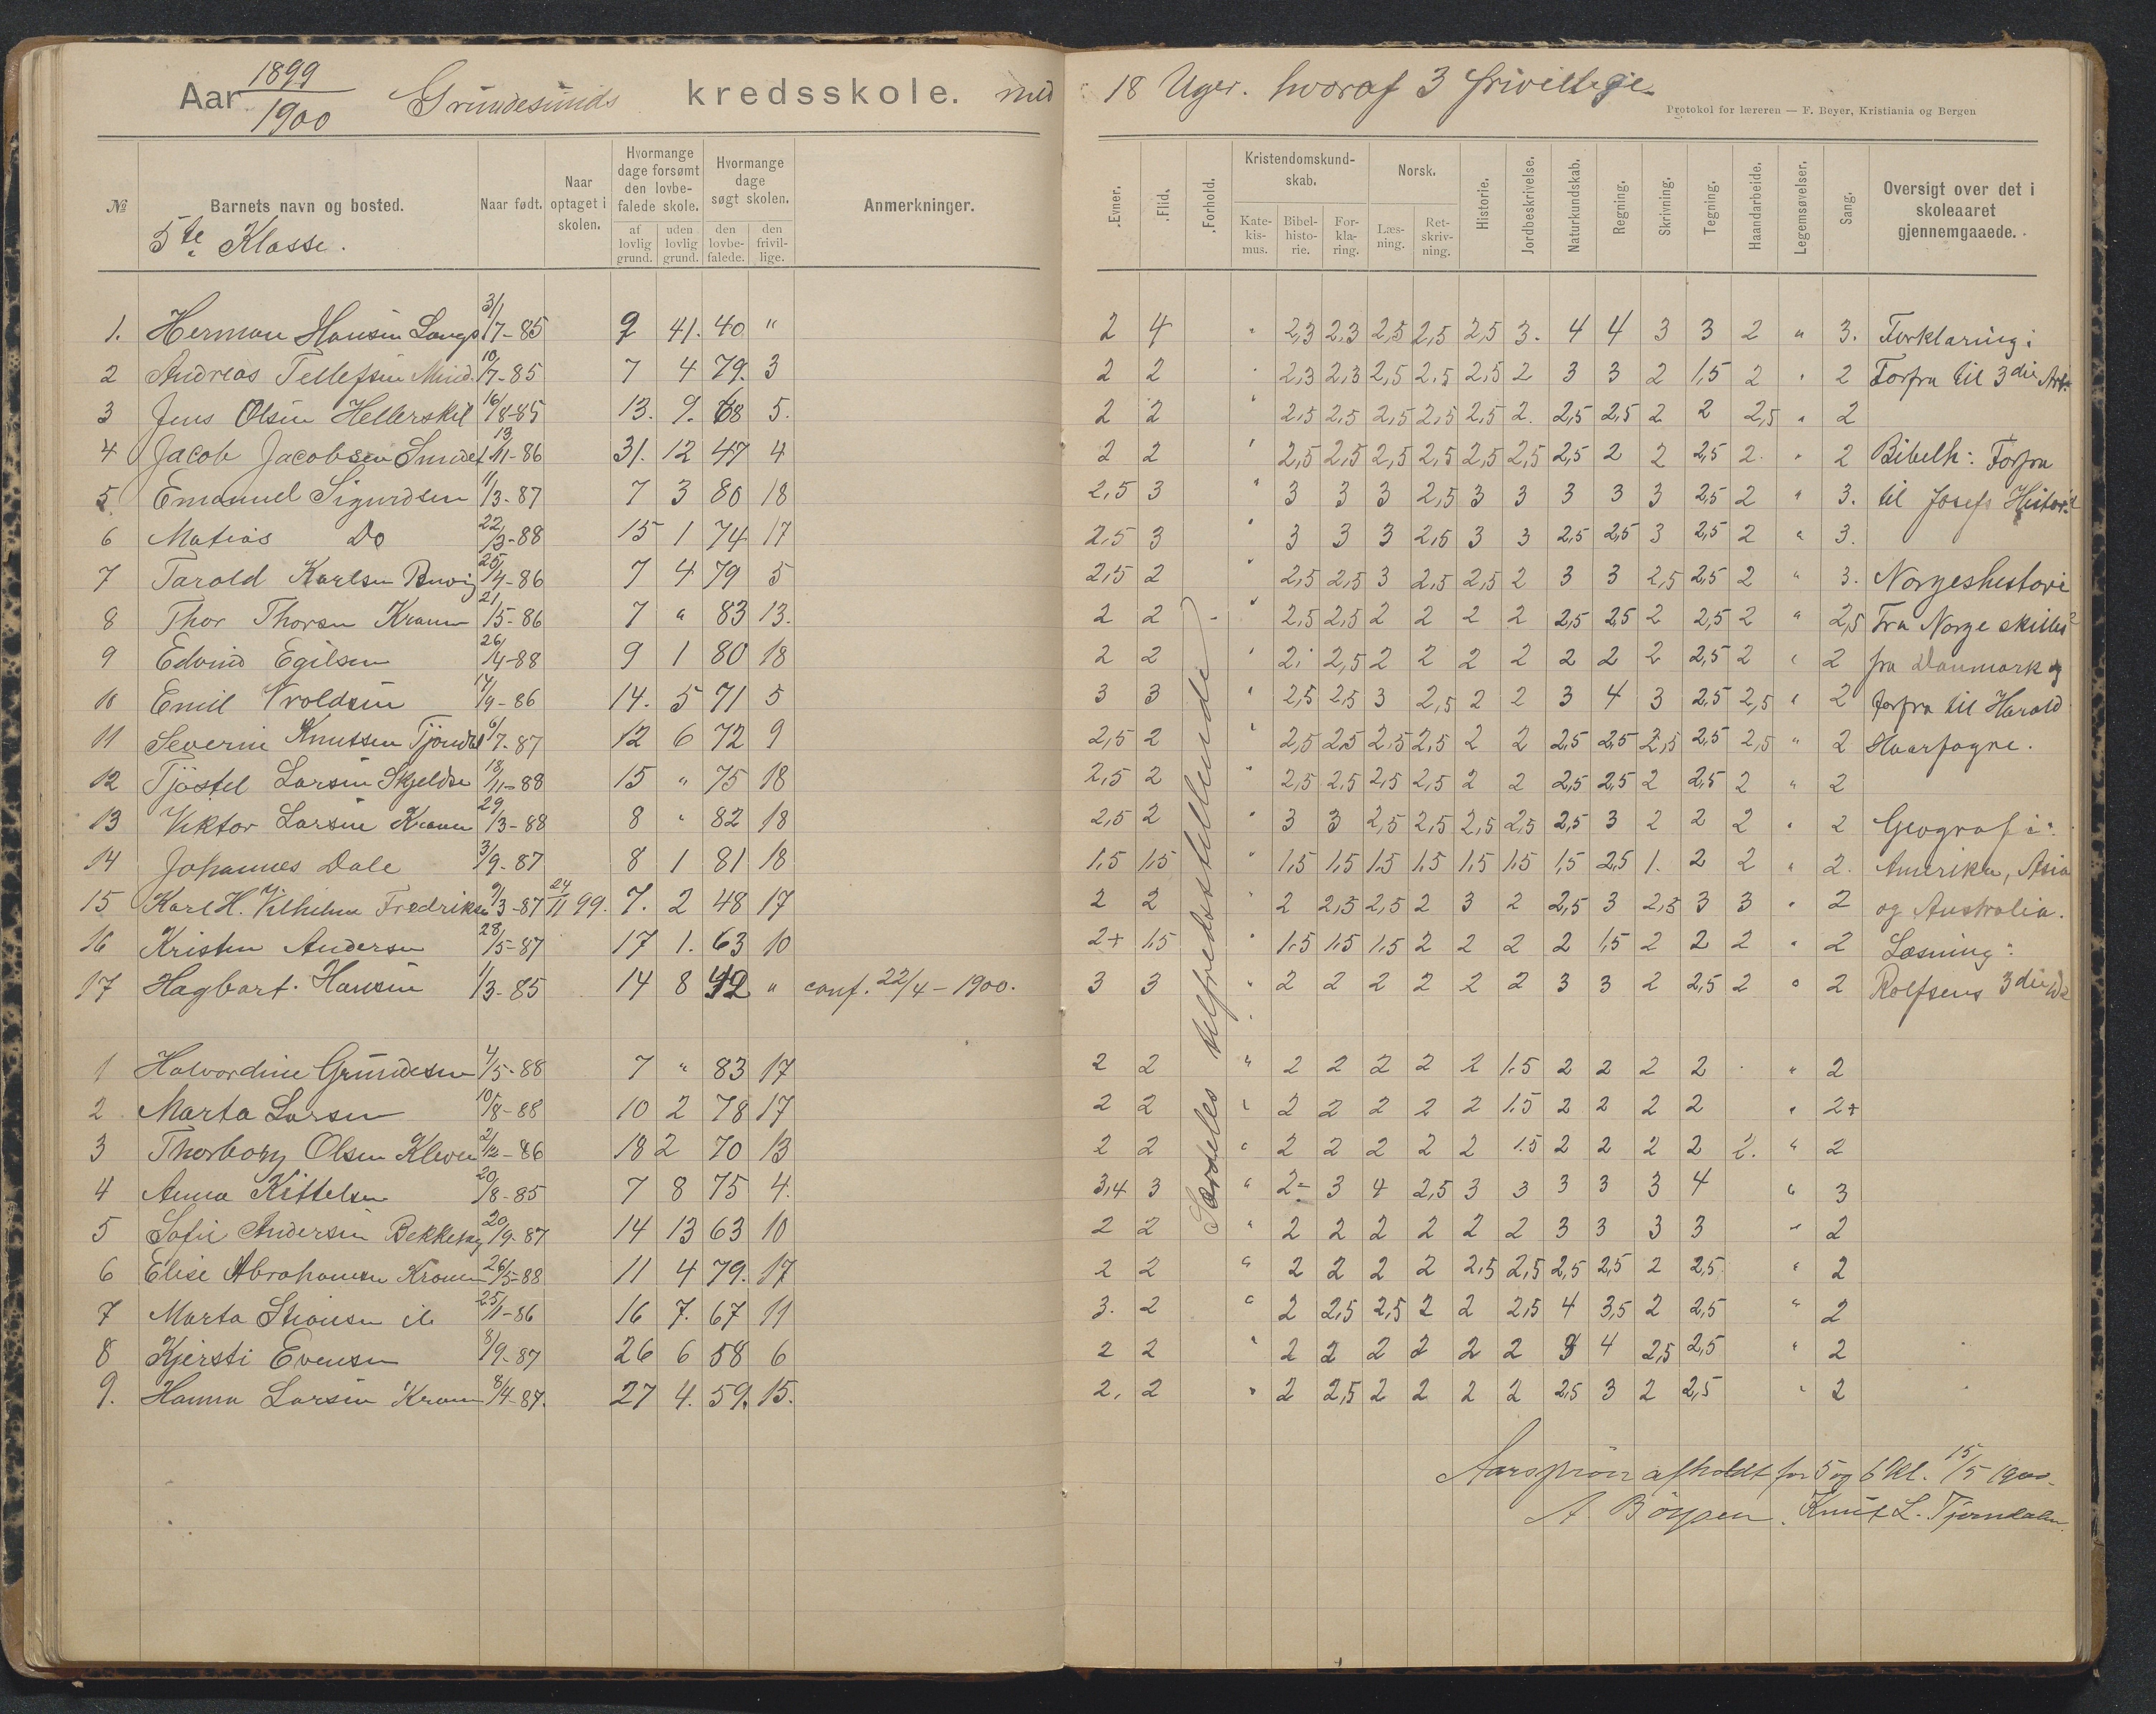 Aar 1899/1900 Grundesunds kredsskole. med 18 Uger. hvoraf 3 frivillige.
Protokol for læreren — F. Beyer, Kristiania og Bergen
№ Barnets navn og bosted. Naar født. Naar optaget i skolen. Hvormange dage forsømt den lovbefalede skole. af lovlig grund. uden lovlig grund. Hvormange dage søgt skolen. den lovbefalede. den frivillige. Anmerkninger. Evner. Flid. Forhold. Kristendomskundskab. Katekismus. Bibelhistorie. Forklaring. Norsk. Læsning. Retskrivning. Historie. Jordbeskrivelse. Naturkundskab. Regning. Skrivning. Tegning. Haandarbeide. Legemsøvelser. Sang. Oversigt over det i skoleaaret gjennemgaaede.
5te Klasse.
1. Herman Hansen 3/7-85 9 41. 40 " 2 4 " 2,3 2,3 2,5 2,5 2,5 3. 4 4 3 3 2 " 3. Forklaring:
2 Andreas Tellefsen 10/7-85 7 4 79. 3 2 2 " 2,3 2,3 2,5 2,5 2,5 2 3 3 2 1,5 2 " 2 Forfra til 3die Art.
3 Jens Olsen Hellerskil 16/8-85 13. 9. 68 5. 2 2 " 2,5 2,5 2,5 2,5 2,5 2. 2,5 2,5 2 2 2,5 " 2
4 Jacob Jacobsen 13/11-86 31. 12 47 4 2 2 " 2,5 2,5 2,5 2,5 2,5 2,5 2,5 2 2 2,5 2. " 2 Bibelh: Forfra
5 Emanuel Sigurdsen 11/3-87 7 3 80 18 2,5 3 " 3 3 3 2,5 3 3 3 3 3 2,5 2 " 3. til Josefs Historie
6 Matias Do 22/3-88 15 1 74 17 2,5 3 " 3 3 3 2,5 3 3 2,5 2,5 3 2,5 2 " 3.
7 Tarald Karlsen 25/4-86 7 4 79 5 2,5 2 " 2,5 2,5 3 2,5 2,5 2 3 3 2,5 2,5 2 " 3. Norgeshistorie
8 Thor Thorsen 21/5-86 7 " 83 13. 2 2 " 2,5 2,5 2 2 2 2 2,5 2,5 2 2,5 2 " 2,5 Fra Norge skilles
9 Edvind Egilsen 26/4-88 9 1 80 18 2 2 " 2 2,5 2 2 2 2 2 2 2 2,5 2 " 2 fra Danmark og
10 Emil Vroldsen 17/9-86 14. 5 71 5 3 3 " 2,5 2,5 3 2,5 2 2 3 4 3 2,5 2,5 " 2 forfra til Harald
11 Severin Knutsen 6/7-87 12 6 72 9 2,5 2 " 2,5 2,5 2,5 2,5 2 2 2,5 2,5 2,5 2,5 2,5 " 2 Haarfagre.
12 Tjöstel Larsen 18/11-88 15 " 75 18 2,5 2 " 2,5 2,5 2,5 2,5 2 2 2,5 2,5 2 2,5 2 " 2
13 Viktor Larsen 29/3-88 8 " 82 18 2,5 2 " 3 3 2,5 2,5 2,5 2,5 2,5 3 2 2 2 " 2 Geografi:
14 Johannes Dale 3/9-87 8 1 81 18 1,5 1,5 " 1,5 1,5 1,5 1,5 1,5 1,5 1,5 2,5 1. 2 2 " 2. Amerika, Asia
15 Karl H. Vilhelm Fredriksen 9/3-87 24/11 99. 7. 2 48 17 2 2 " 2 2,5 2,5 2 3 2 2,5 3 2,5 3 3 " 2 og Australia.
16 Kristen Andersen 28/5-87 17 1. 63 10 2+ 1,5 " 1,5 1,5 1,5 2 2 2 2 1,5 2 2 2 " 2 Læsning:
17 Hagbart Hansen 1/3-85 14 8 42 " conf. 22/4-1900. 3 3 " 2 2 2 2 2 2 3 3 2 2,5 2 " 2 Rolfsens 3die
Særdeles tilfredsstillende
1 Halvordine Grundesen 4/5-88 7 " 83 17 2 2 " 2 2 2 2 2 1.5 2 2 2 2 " 2
2 Marta Larsen 10/8-88 10 2 78 17 2 2 " 2 2 2 2 2 1.5 2 2 2 2 " 2+
3 Thorborg Olsen 2/12-86 18 2 70 13 2 2 " 2 2 2 2 2 1.5 2 2 2 2 2. " 2
4 Anna Kittelsen 20/8-85 7 8 75 4. 3,4 3 " 2- 3 4 2,5 3 3 3 3 3 4 " 3
5 Sofie Andersen 20/9-87 14 13 63 10 2 2 " 2 2 2 2 2 2 3 3 3 3 " 2
6 Elise Abrahamsen 26/5-88 11 4 79. 17 2 2 " 2 2 2 2 2,5 2,5 2,5 2,5 2 2,5 " 2
7 Marta 25/11-86 16 7. 67 11 3. 2 " 2 2,5 2,5 2 2 2,5 4 3,5 2 2,5 " 2
8 Kjersti Evensen 8/9-87 26 6 58 6 2 2 " 2 2 2 2 2 2 3 4 2,5 2,5 " 2
9. Hanna Larsen 8/4-87. 27 4. 59. 15. 2, 2 " 2 2,5 2 2 2 2 2,5 3 2 2,5 " 2
Aarsprøve afholdt for 5 og 6 Kl. 15/5 1900.
A. Böysen. Knut L. Tjorndalen.